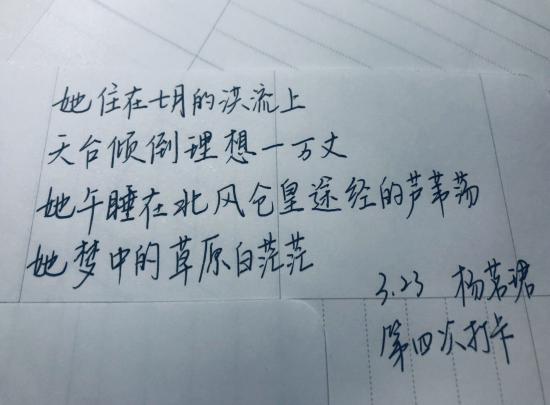 她住在七月的洪流上
天台倾倒理想一万丈
她午睡在北风仓皇途经的芦苇荡
她梦中的草原白茫茫
3.23 杨茗珺
第四次打卡